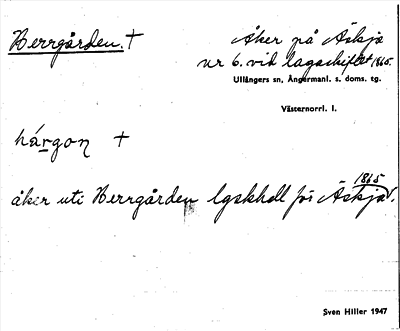 Herrgården. † Åker på Äskja
nr 6. vid lagaskiftet 1865.
Ullångers sn, Ångermanl. s. doms. tg.
Västernorrl. l.
hárgon †
åker uti Herrgården lgskhdl för Äskja 1865.
Sven Hiller 1947